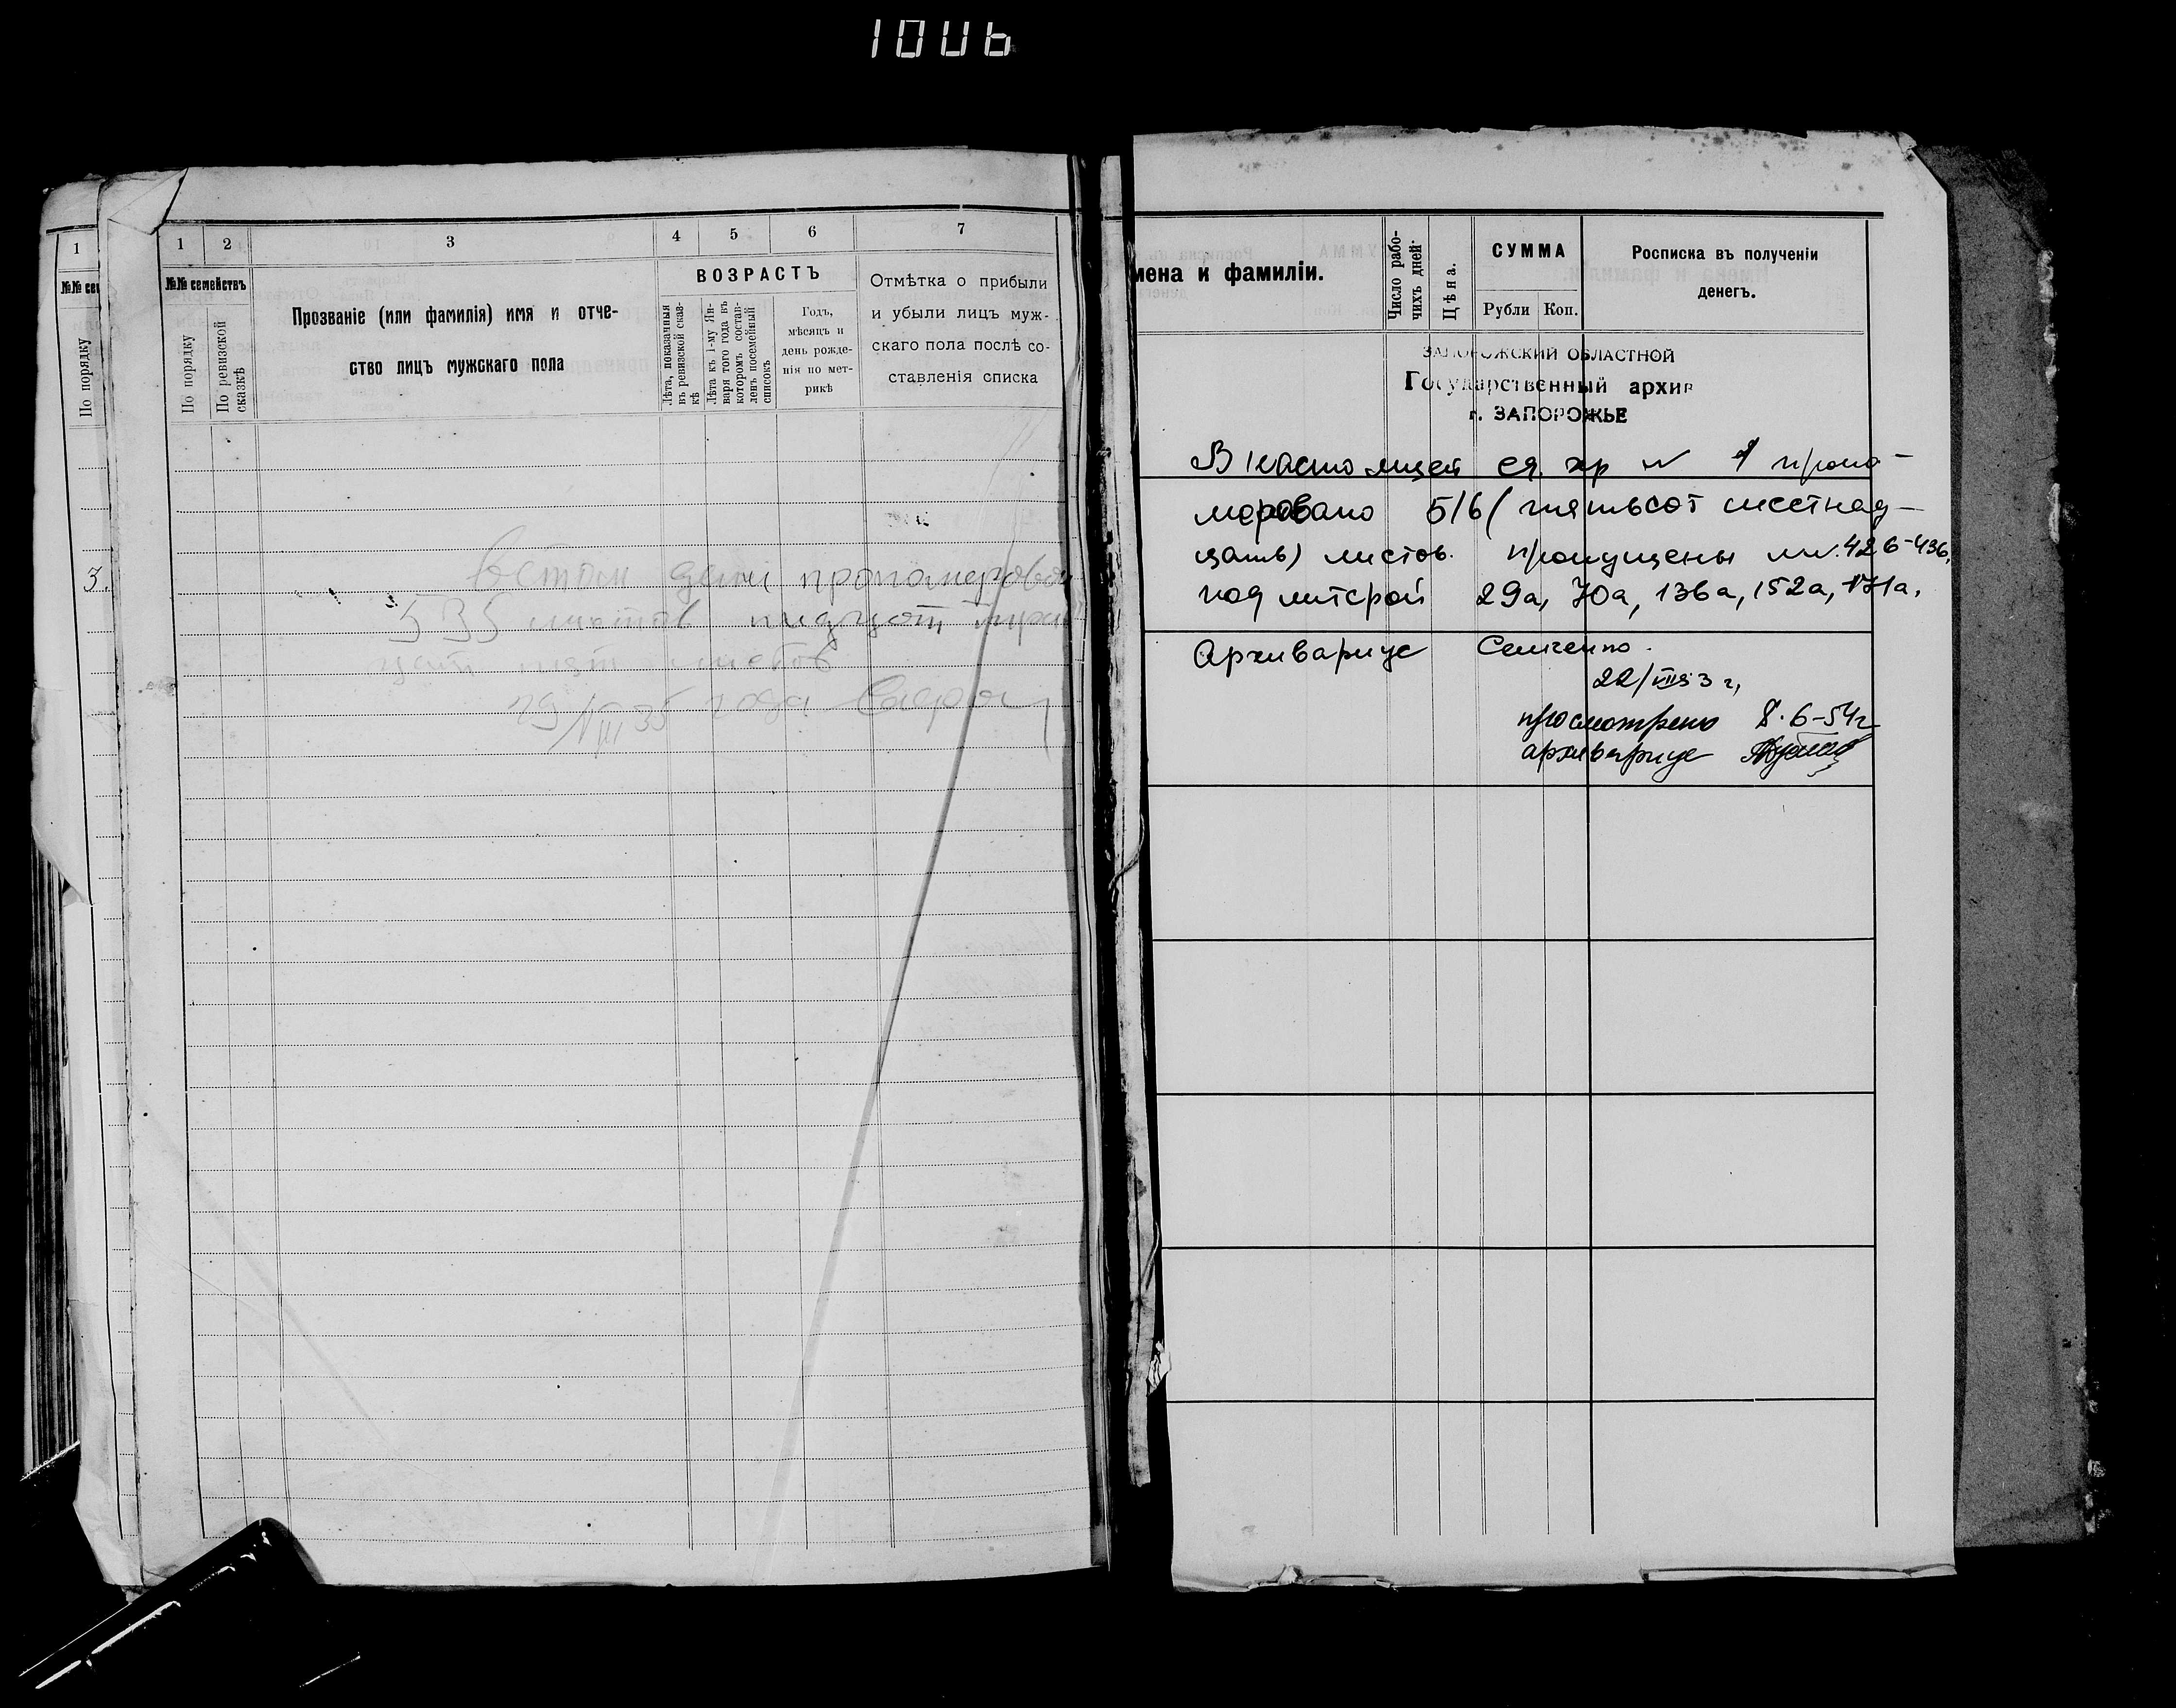 1006
1
№№ сем
По порядку
3.
1 2 3 4 5 6 7
№№ семействъ
По порядку
По ревизской сказкѣ
Прозваніе (или фамилія) имя и отче-
ство лицъ мужскаго пола
ВОЗРАСТЪ
Лѣта, показанныя
въ ревизской сказ-
кѣ
Лѣта къ 1-му Ян-
варя того года въ
которомъ состав-
ленъ посемейный
списокъ
Годъ,
мѣсяцъ и
день рожде-
нія по мет-
рикѣ
Отмѣтка о прибыли
и убыли лицъ муж-
скаго пола послѣ со-
ставленія списка
В етом деле пронумерован
535 листов пядцот трит
цать пят листов
29/VIII 35 года
мена и фамиліи.
Число рабо-
чихъ дней.
Цѣна.
СУММА
Рубли Коп.
Росписка въ полученіи
денегъ.
ЗАПОРОЖСКИЙ ОБЛАСТНОЙ
Государственный архив
г. ЗАПОРОЖЬЕ
В настоящей ед. хр № 1 прону-
меровано 516 (пятьсот шестнад-
цать) листов. пропущены лл. 426-436,
под литерой 29а, 70а, 136а, 152а, 171а.
Архивариус
22/VIII 53 г,
просмотрено 8.6-54г
архивариус